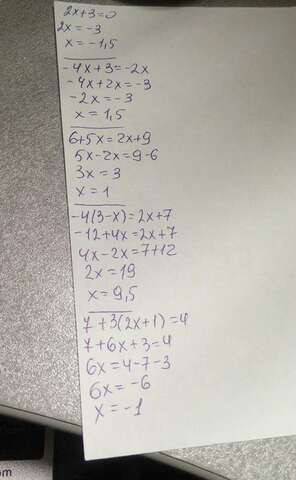 2x+3=0
2x=-3
x=-1,5
-4x+3=-2x
-4x+2x=-3
-2x=-3
x=1,5
6+5x=2x+9
5x-2x=9-6
3x=3
x=1
-4(3-x)=2x+7
-12+4x=2x+7
4x-2x=7+12
2x=19
x=9,5
7+3(2x+1)=4
7+6x+3=4
6x=4-7-3
6x=-6
x=-1
om